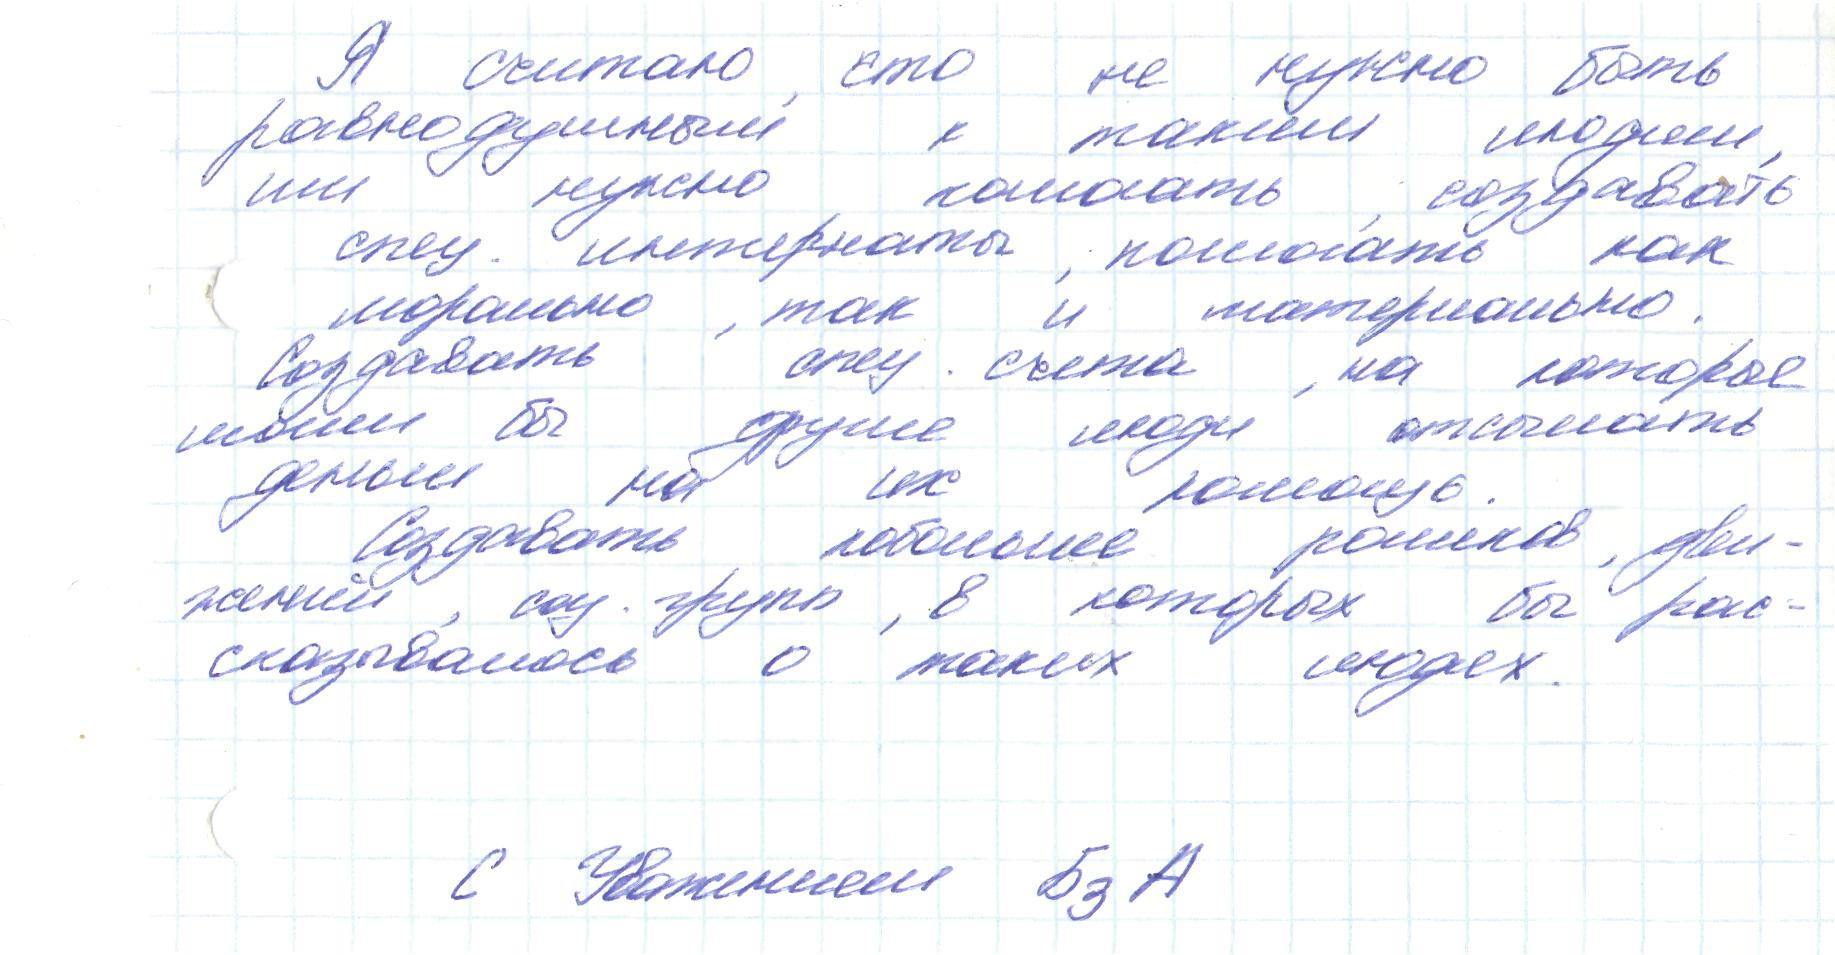 Я считаю, что не нужно быть
равнодушным к таким людям,
им нужно помогать, создавать
спец. интернаты, помогать как
морально, так и материально.
Создавать спец. счета, на которые
могли бы другие люди отсылать
деньги на их помощь.
Создавать побольше роликов, дви-
жений, соц. групп, в которых бы рас-
сказывалось о таких людях.
С Уважением БзА